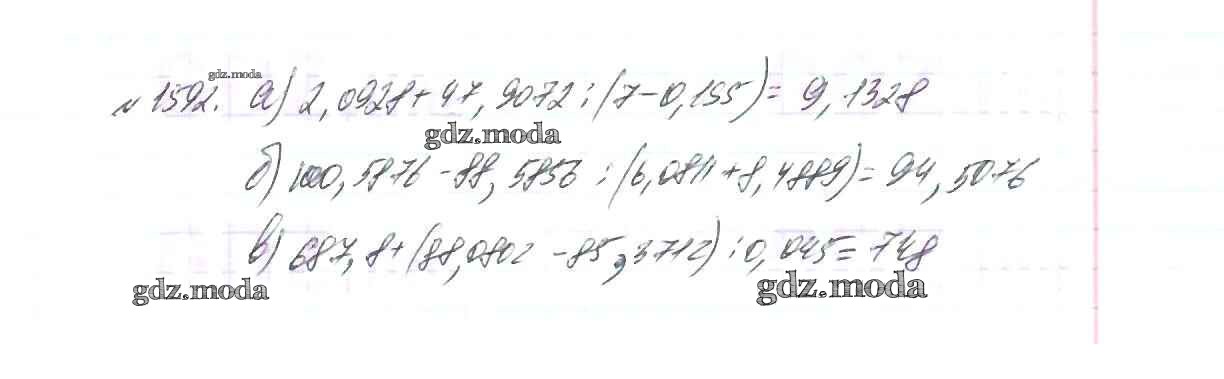 gdz.moda
№ 1592. а) 2,0928+47,9072:(7-0,195)= 9,1328
gdz.moda
б) 100,5876-88,5856:(6,0811+8,4889)=94,5076
в) 687,8+(88,0802-85,3712):0,045=748
gdz.moda gdz.moda